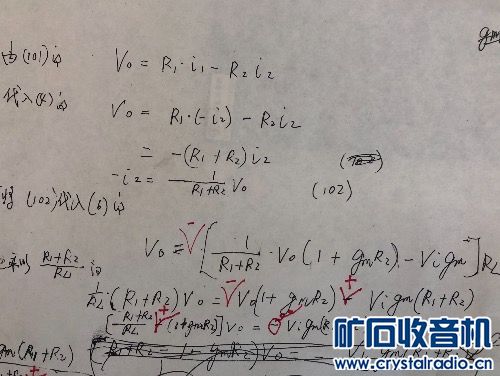 gm
由(101)得 V₀ = R₁·i₁ - R₂i₂
代入(4)得
V₀ = R₁·(-i₂) - R₂i₂
= -(R₁+R₂)i₂
-i₂ = 1/(R₁+R₂) V₀ (102)
将(102)代入(6)得
V₀ = -[1/(R₁+R₂)·V₀(1+gmR₂) - Vigm]RL
乘以 (R₁+R₂)/RL 得
1/RL·(R₁+R₂)V₀ = -V₀(1+gmR₂) + Vigm(R₁+R₂)
[(R₁+R₂)/RL + (1+gmR₂)]V₀ = Vigm(R₁
gm(R₁+R₂)
矿石收音机
www.crystalradio.cn